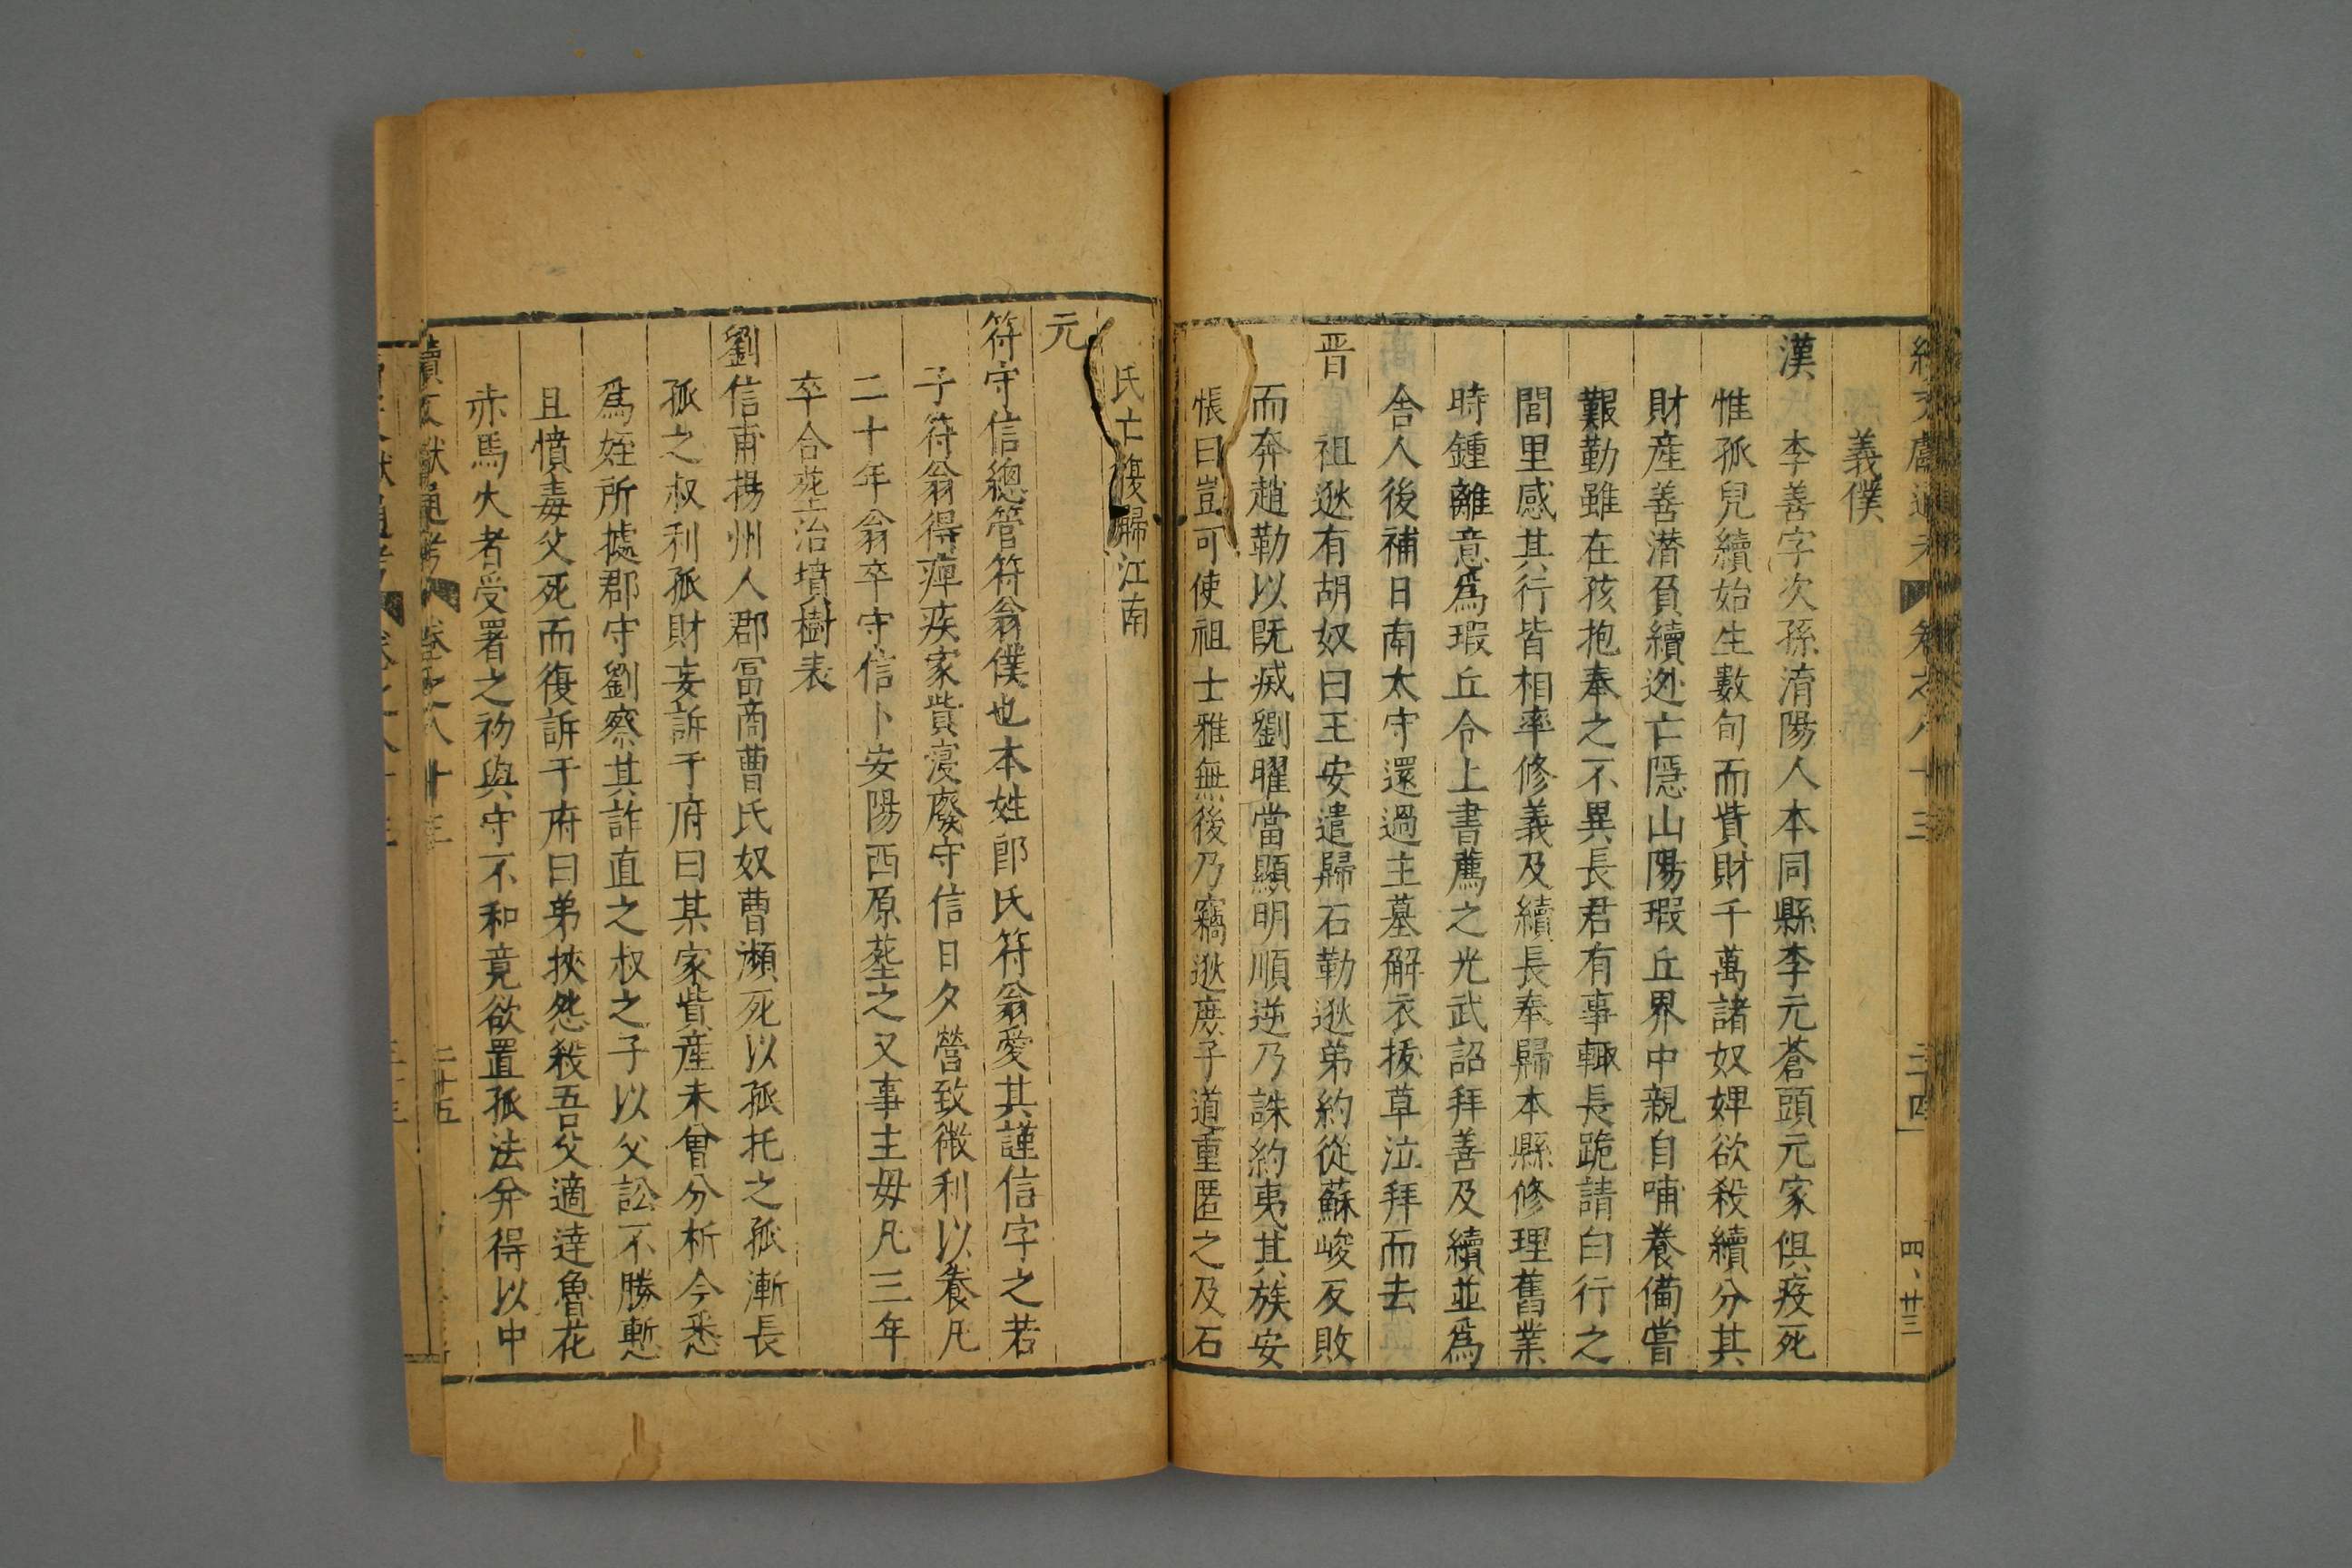 義僕
漢
李善字次孫淯陽人本同縣李元蒼頭元家俱疫死
惟孤兒續始生數旬而貲財千萬諸奴婢欲殺續分其
財産善潜負續迯亡隱山陽瑕丘界中親自哺養備嘗
艱勤雖在孩抱奉之不異長君有事輙長跪請白行之
閭里感其行皆相率修義及續長奉歸本縣修理舊業
時鍾離意爲瑕丘令上書薦之光武詔拜善及續並爲
舍人後補日南太守還過主墓解衣拔草泣拜而去
晋
祖逖有胡奴曰王安遣歸石勒逖弟約從蘇峻反敗
而奔趙勒以既滅劉曜當顯明順逆乃誅約夷其族安
悵曰豈可使祖士雅無後乃竊逖庶子道重匿之及石
氏亡復歸江南
元
符守信總管符翁僕也本姓郎氏符翁愛其謹信字之若
子符翁得痺疾家貲寖廢守信日夕營致微利以養凡
二十年翁卒守信卜安陽西原塟之又事主毋凡三年
卒合塟治墳樹表
劉信甫揚州人郡冨商曹氏奴曹瀕死以孤托之孤漸長
孤之叔利孤財妄訴于府曰某家貲産未曾分析今悉
爲姪所據郡守劉察其詐直之叔之子以父訟不勝慙
且憤毒父死而復訴于府曰弟挾怨殺吾父適達魯花
赤馬火者受署之初與守不和竟欲置孤法分得以中
續文獻通考
卷之八十三
二十五